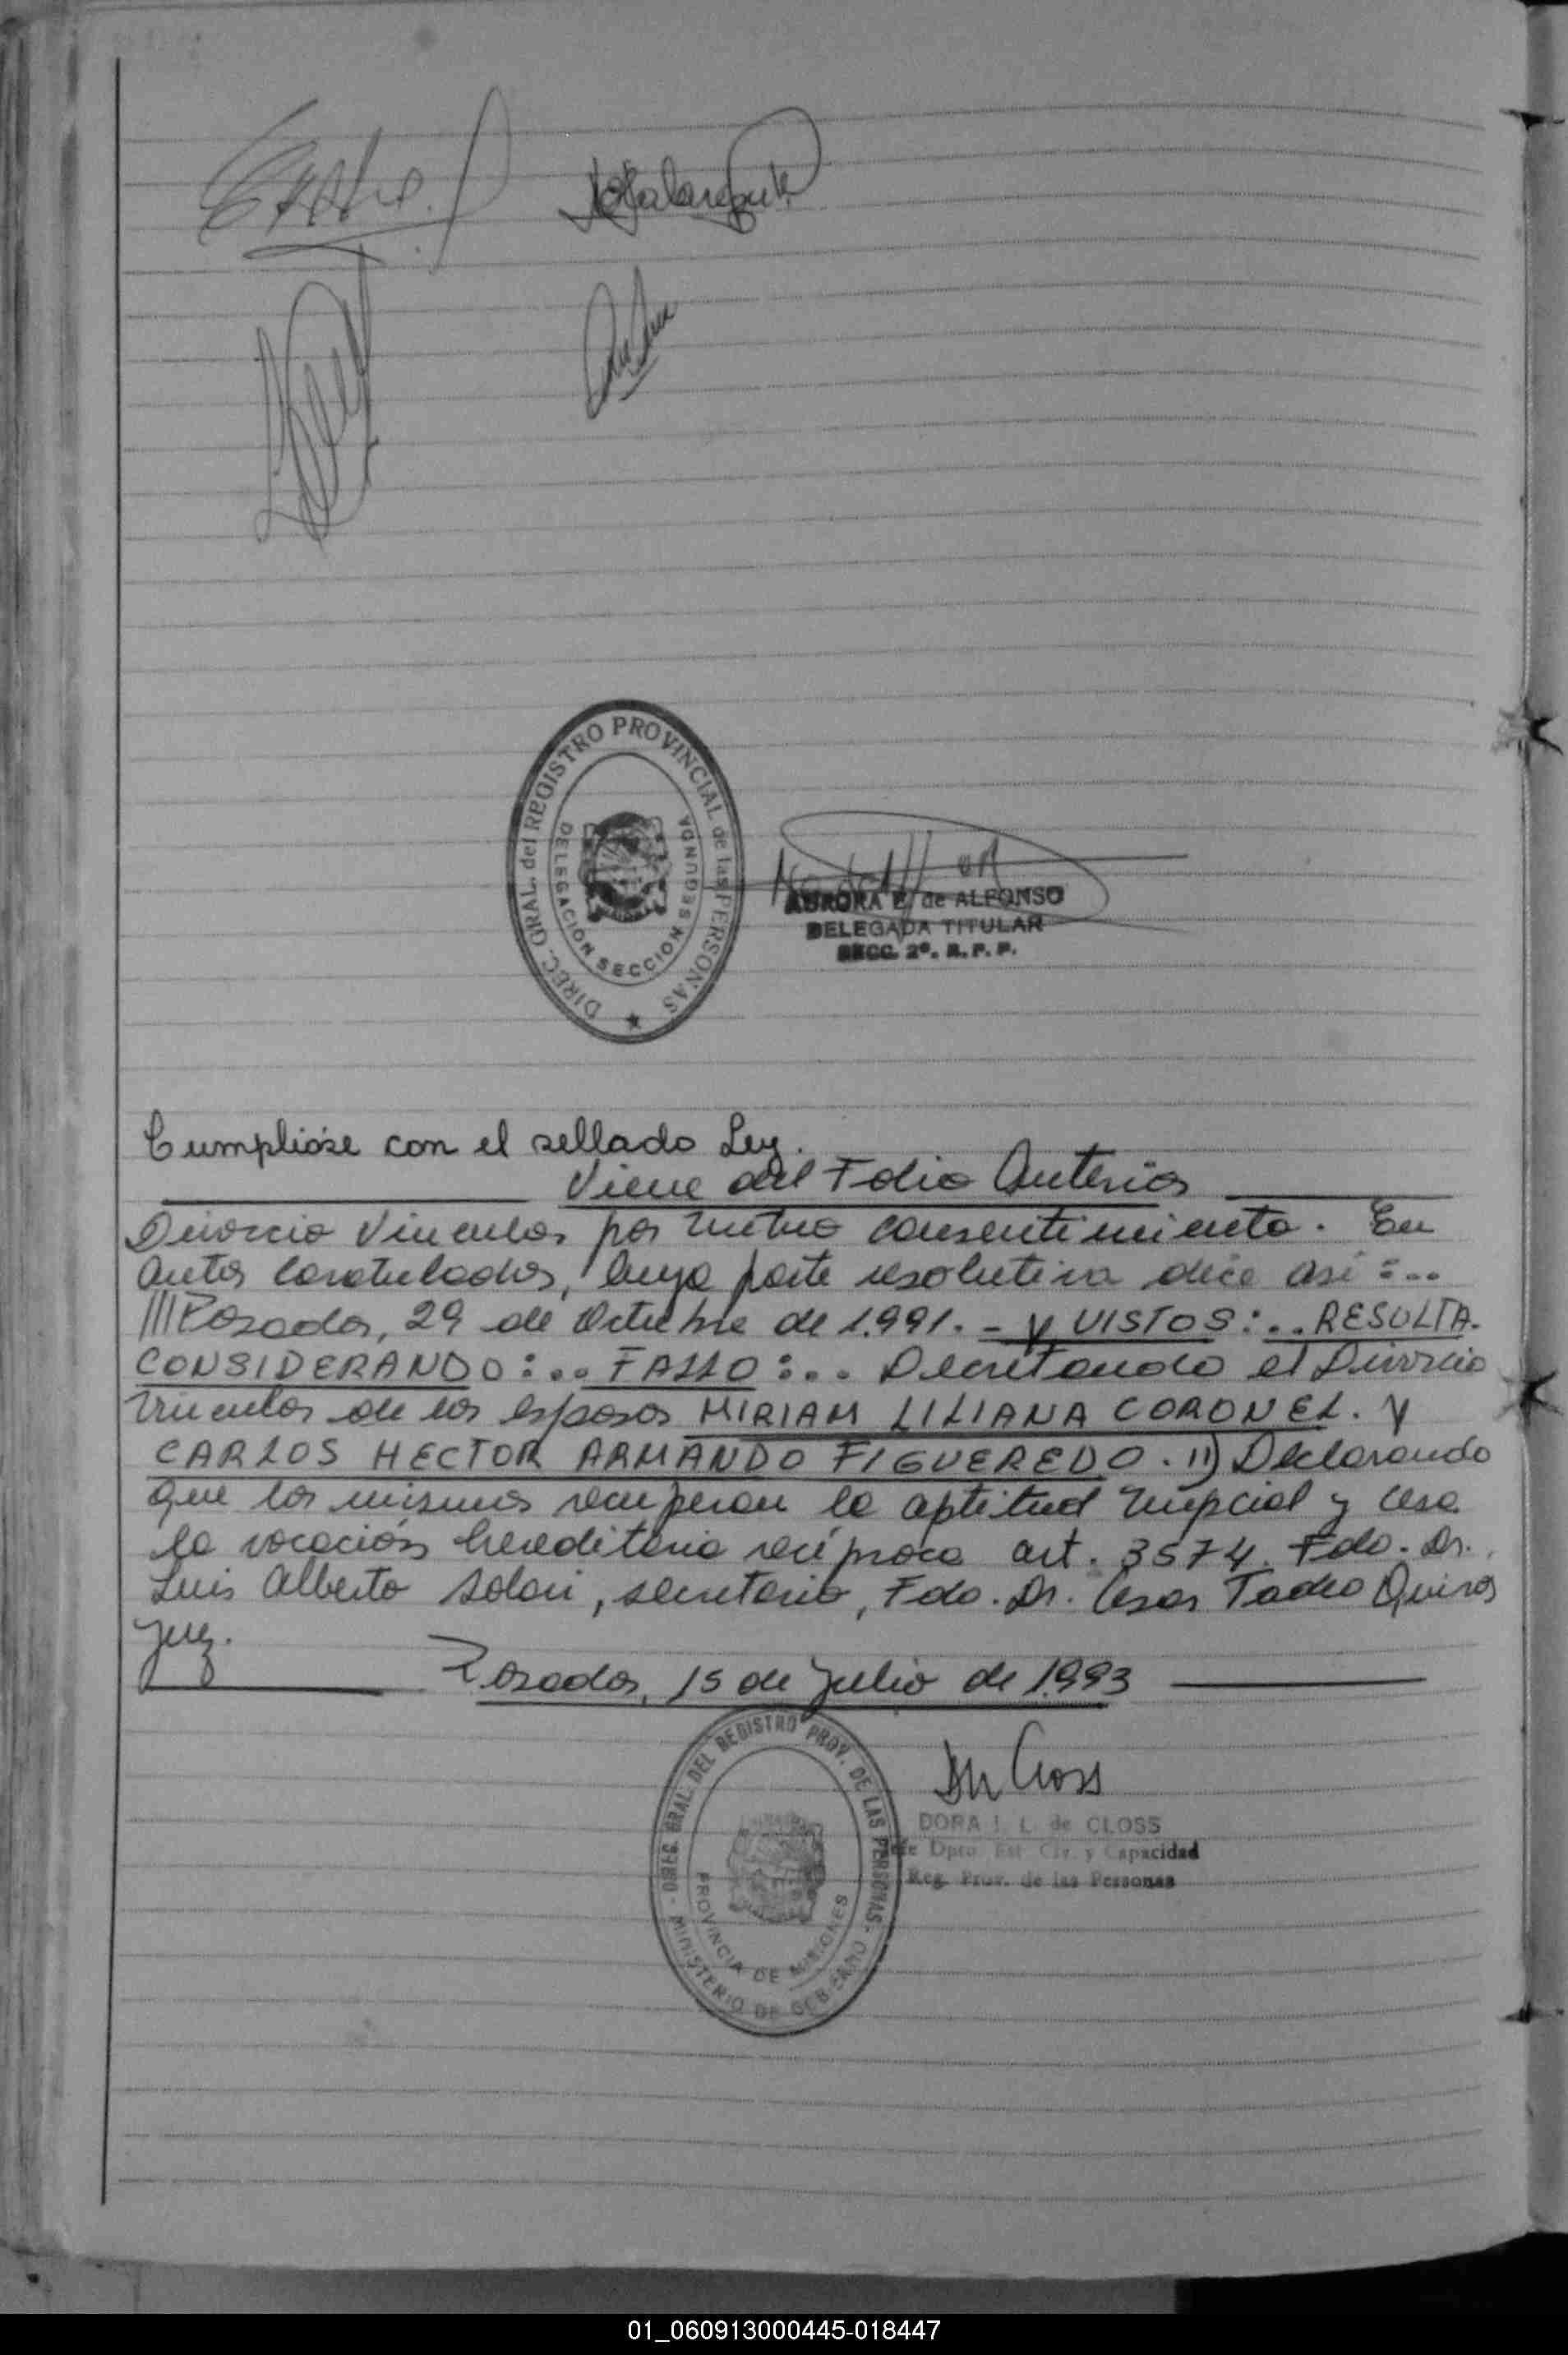 DIREC. GRAL. del REGISTRO PROVINCIAL de las PERSONAS
DELEGACION SECCION SEGUNDA
AURORA E. de ALFONSO
DELEGADA TITULAR
SECC. 2ª. R. P. P.
Cumplióse con el sellado Ley.
Viene del Folio Anterior
Divorcio Vincular por mutuo consentimiento. En
autos caratulados, cuya parte resolutiva dice así :...
///Posadas, 29 de Octubre de 1.991. - Y VISTOS: .. RESULTA.
CONSIDERANDO : ... FALLO : ... Decretando el Divorcio
Vincular de los esposos MIRIAM LILIANA CORONEL. Y
CARLOS HECTOR ARMANDO FIGUEREDO. II) Declarando
que los mismos recuperan la aptitud nupcial y cesa
la vocación hereditaria recíproca art. 3574. Fdo. Dr.
Luis Alberto Solari, secretario, Fdo. Dr. Cesar Tadeo Quiros
Juez.
Posadas, 15 de Julio de 1.993
DIREC. GRAL. DEL REGISTRO PROV. DE LAS PERSONAS -
MINISTERIO DE GOBIERNO
PROVINCIA DE MISIONES
DORA I. L. de CLOSS
Jefe Dpto. Est. Civ. y Capacidad
Reg. Prov. de las Personas
01_060913000445-018447